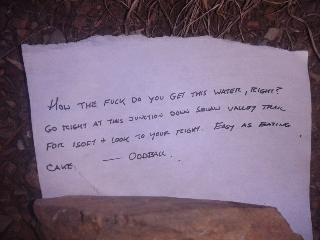 HOW THE FUCK DO YOU GET THIS WATER, RIGHT?
GO RIGHT AT THIS JUNCTION DOWN VALLEY TRAIL
FOR 150FT + LOOK TO YOUR RIGHT. EASY AS EATING
CAKE. — ODDBALL.